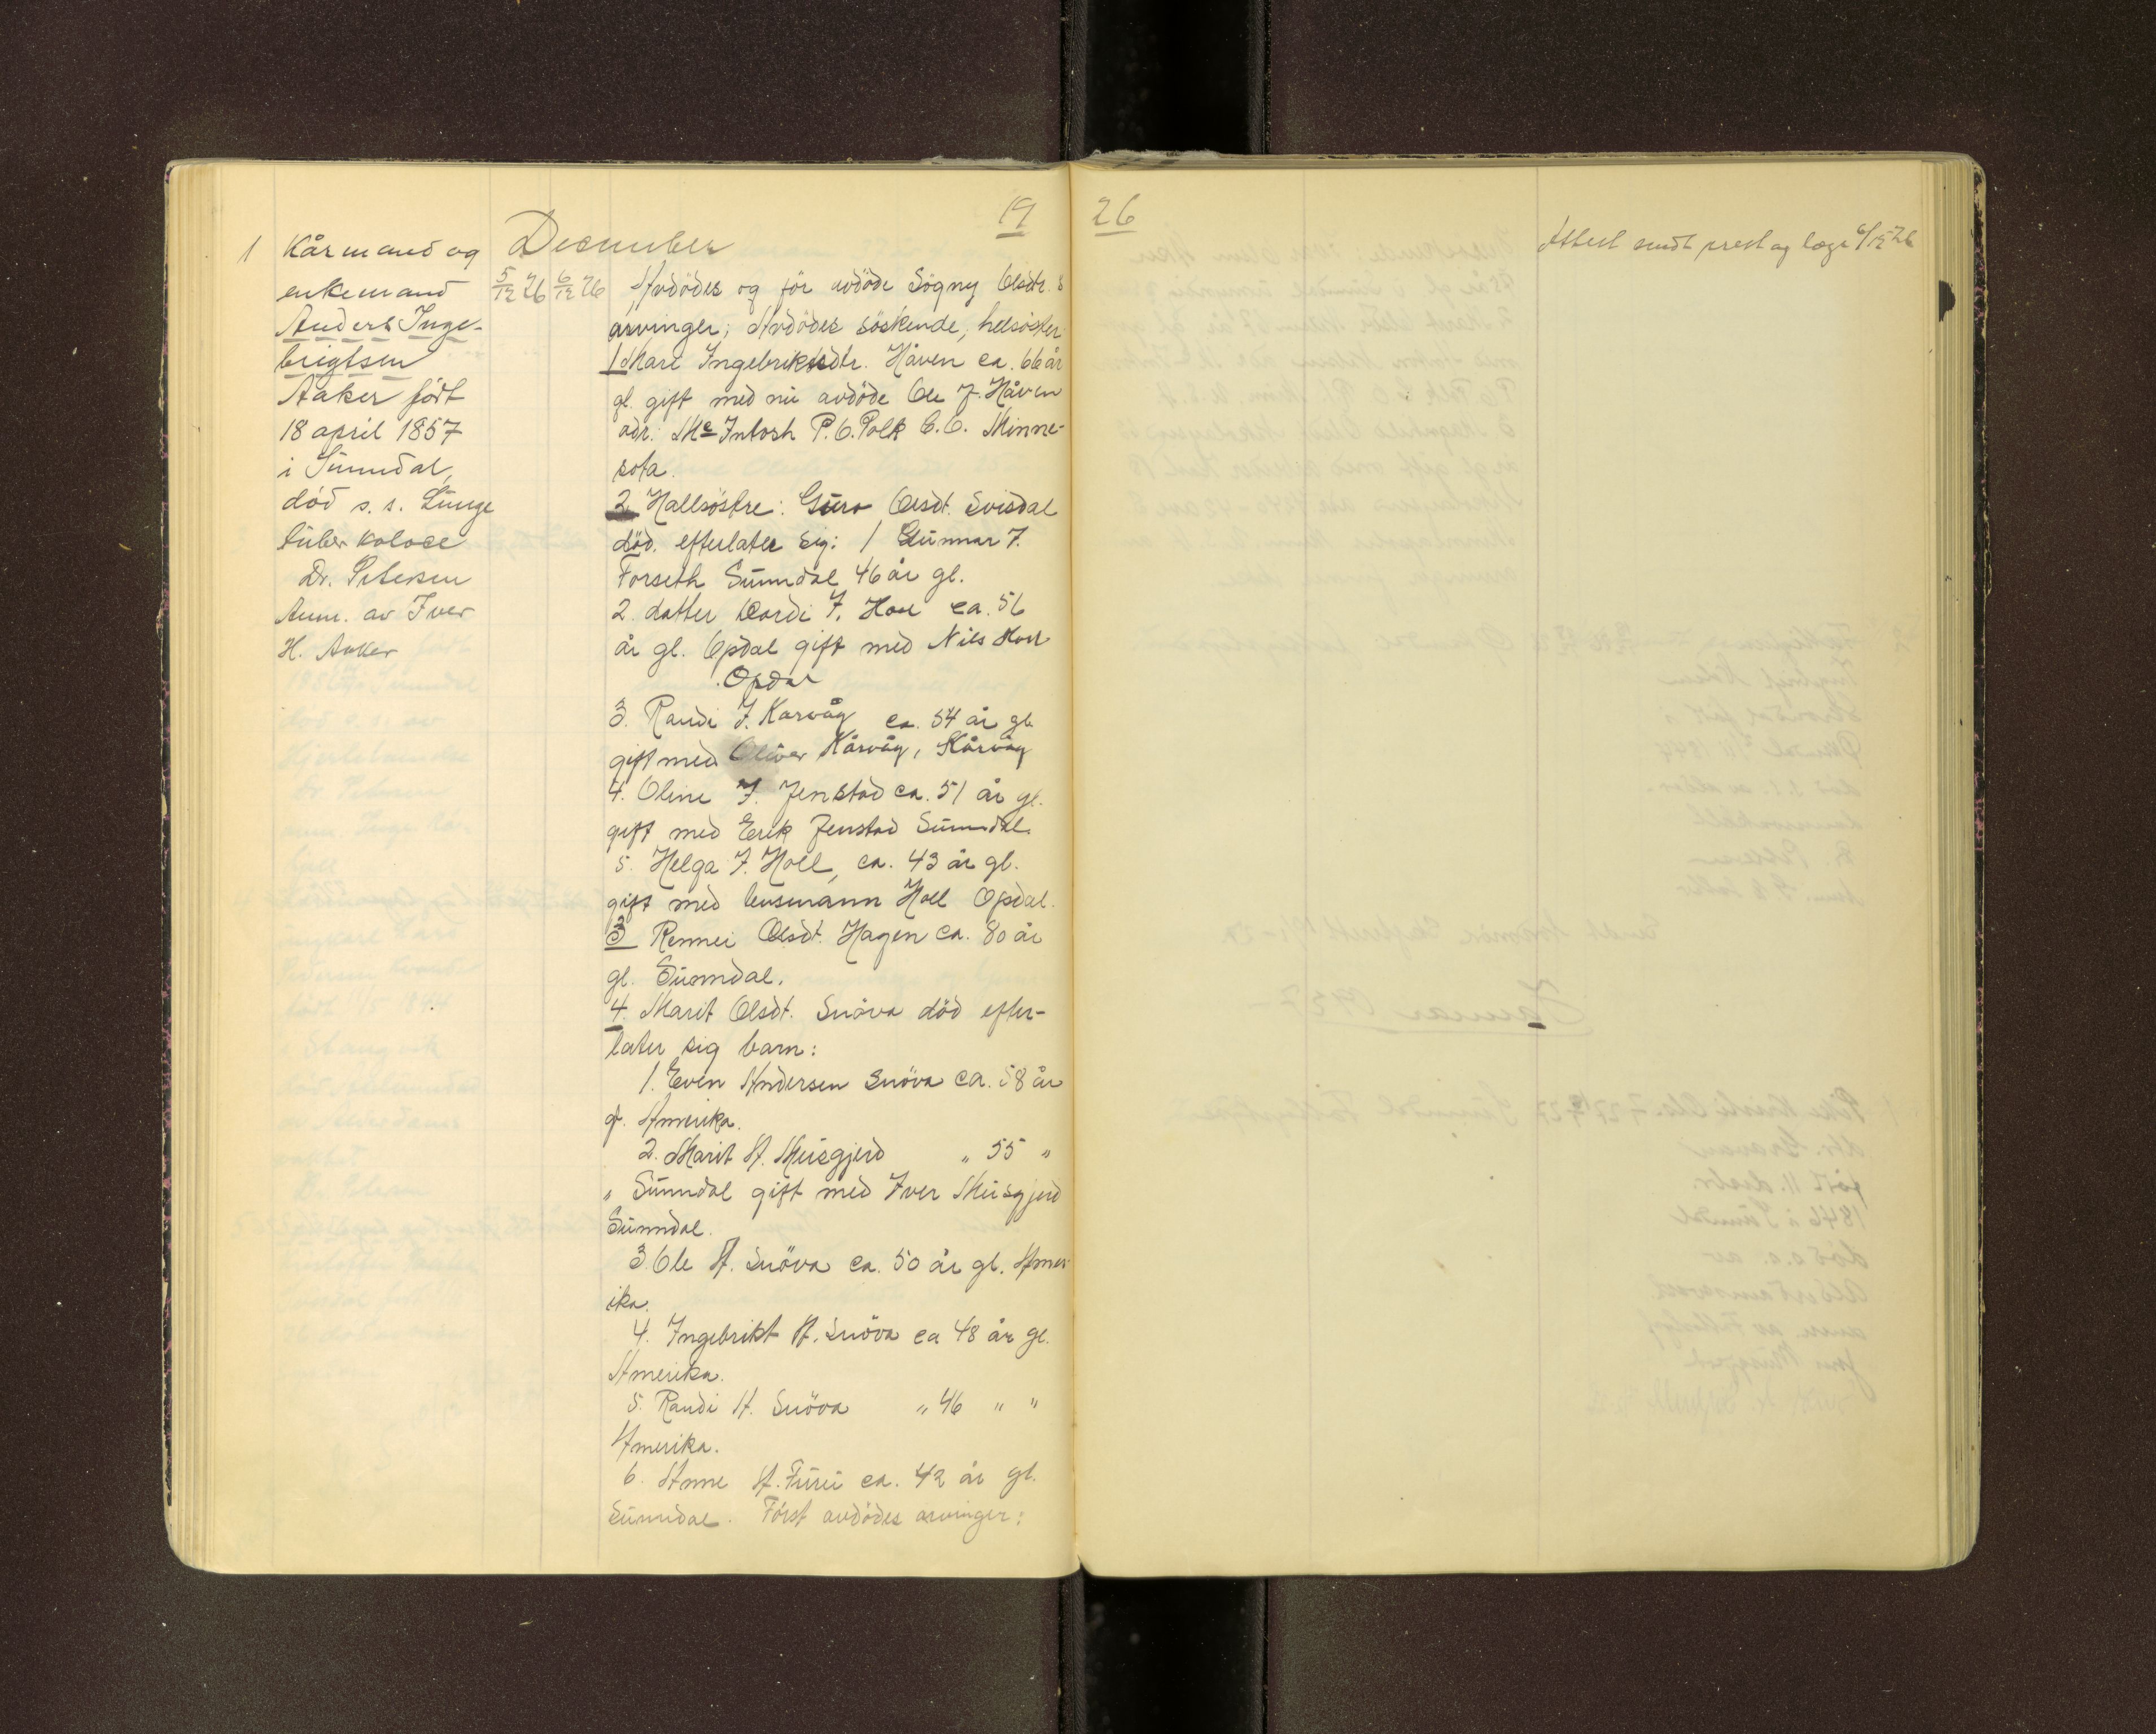 19 26
December
1 Kårmand og
enkemand
Anders Inge-
brigtsen
Aaker født
18 april 1857
i Sunndal,
död s. s. Lunge
tuberkolose
Dr. Petersen
Anm. av Iver
H. Aaker
5/12 26 6/12 26
Avdödes og för avdöde Sögny Olsdtr.s
arvinger; Avdödes söskende, helsöster
1 Mari Ingebriktsdtr. Håven ca. 66 år
gl. gift med nu avdöde Ole J. Håven
adr: Mc Intosh P.O. Polk C.O. Minne-
sota.
2 Halvsöstre: Guro Olsdt. Svisdal
död. efterlater sig: 1 Gunnar J.
Forseth Sunndal 46 år gl.
2. datter Dordi J. Hoel ca. 56
år gl. Opdal gift med Nils Hoel
Opdal
3. Randi J. Karvåg ca. 54 år gl.
gift med Oliver Kårvåg, Kårvåg
4. Oline J. Jenstad ca. 51 år gl.
gift med Erik Jenstad Sunndal.
5. Helga J. Hoel, ca. 43 år gl.
gift med lensmann Hoel Opdal.
3 Rennei Olsdt. Hagen ca. 80 år
gl. Sunndal.
4. Marit Olsdt. Snöva död efter-
later sig barn:
1. Even Andersen Snöva ca. 58 år
gl. Amerika.
2. Marit A. Musgjerd " 55 "
" Sunndal gift med Iver Musgjerd
Sunndal.
3 Ole A. Snöva ca. 50 år gl. Amer-
ika.
4. Ingebrikt A. Snöva ca 48 år gl.
Amerika.
5. Randi A. Snöva " 46 " "
Amerika.
6. Anne A. Furu ca. 42 år gl.
Sunndal. Först avdödes arvinger:
Attest sendt prest og læge 6/12 26